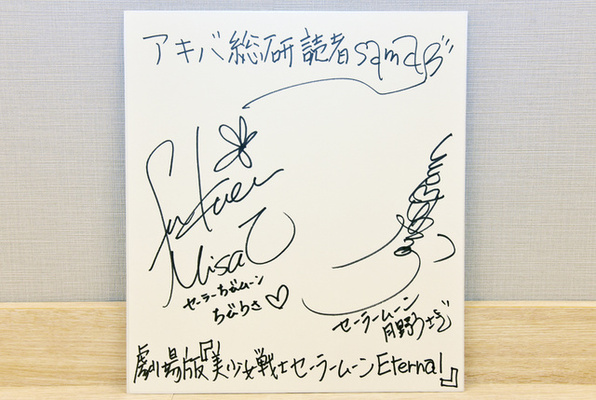 アキバ総研読者sama
Fukuen
Misa
セーラーちびムーン
ちびうさ♡
セーラームーン
月野うさぎ
劇場版『美少女戦士セーラームーンEternal』